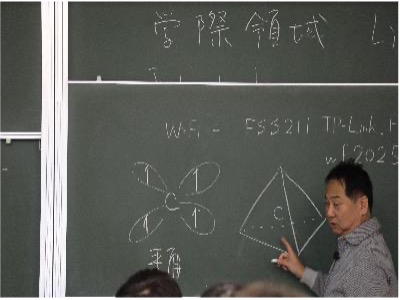 学際領域 Li
WiFi - ESS211 TP-Link.
wf2025
C
C
平面